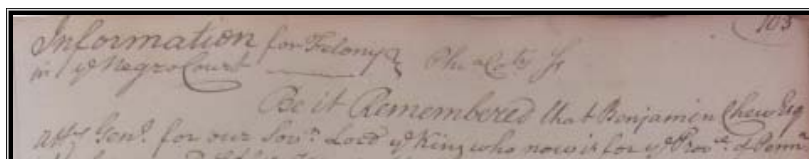 103
Information for Felony
in ye Negro Court Phila Coty ss
Be it Remembered that Benjamin Chew Esq
atty Genl. for our Sovn. Lord ye King who now is for ye Provce. of Penn